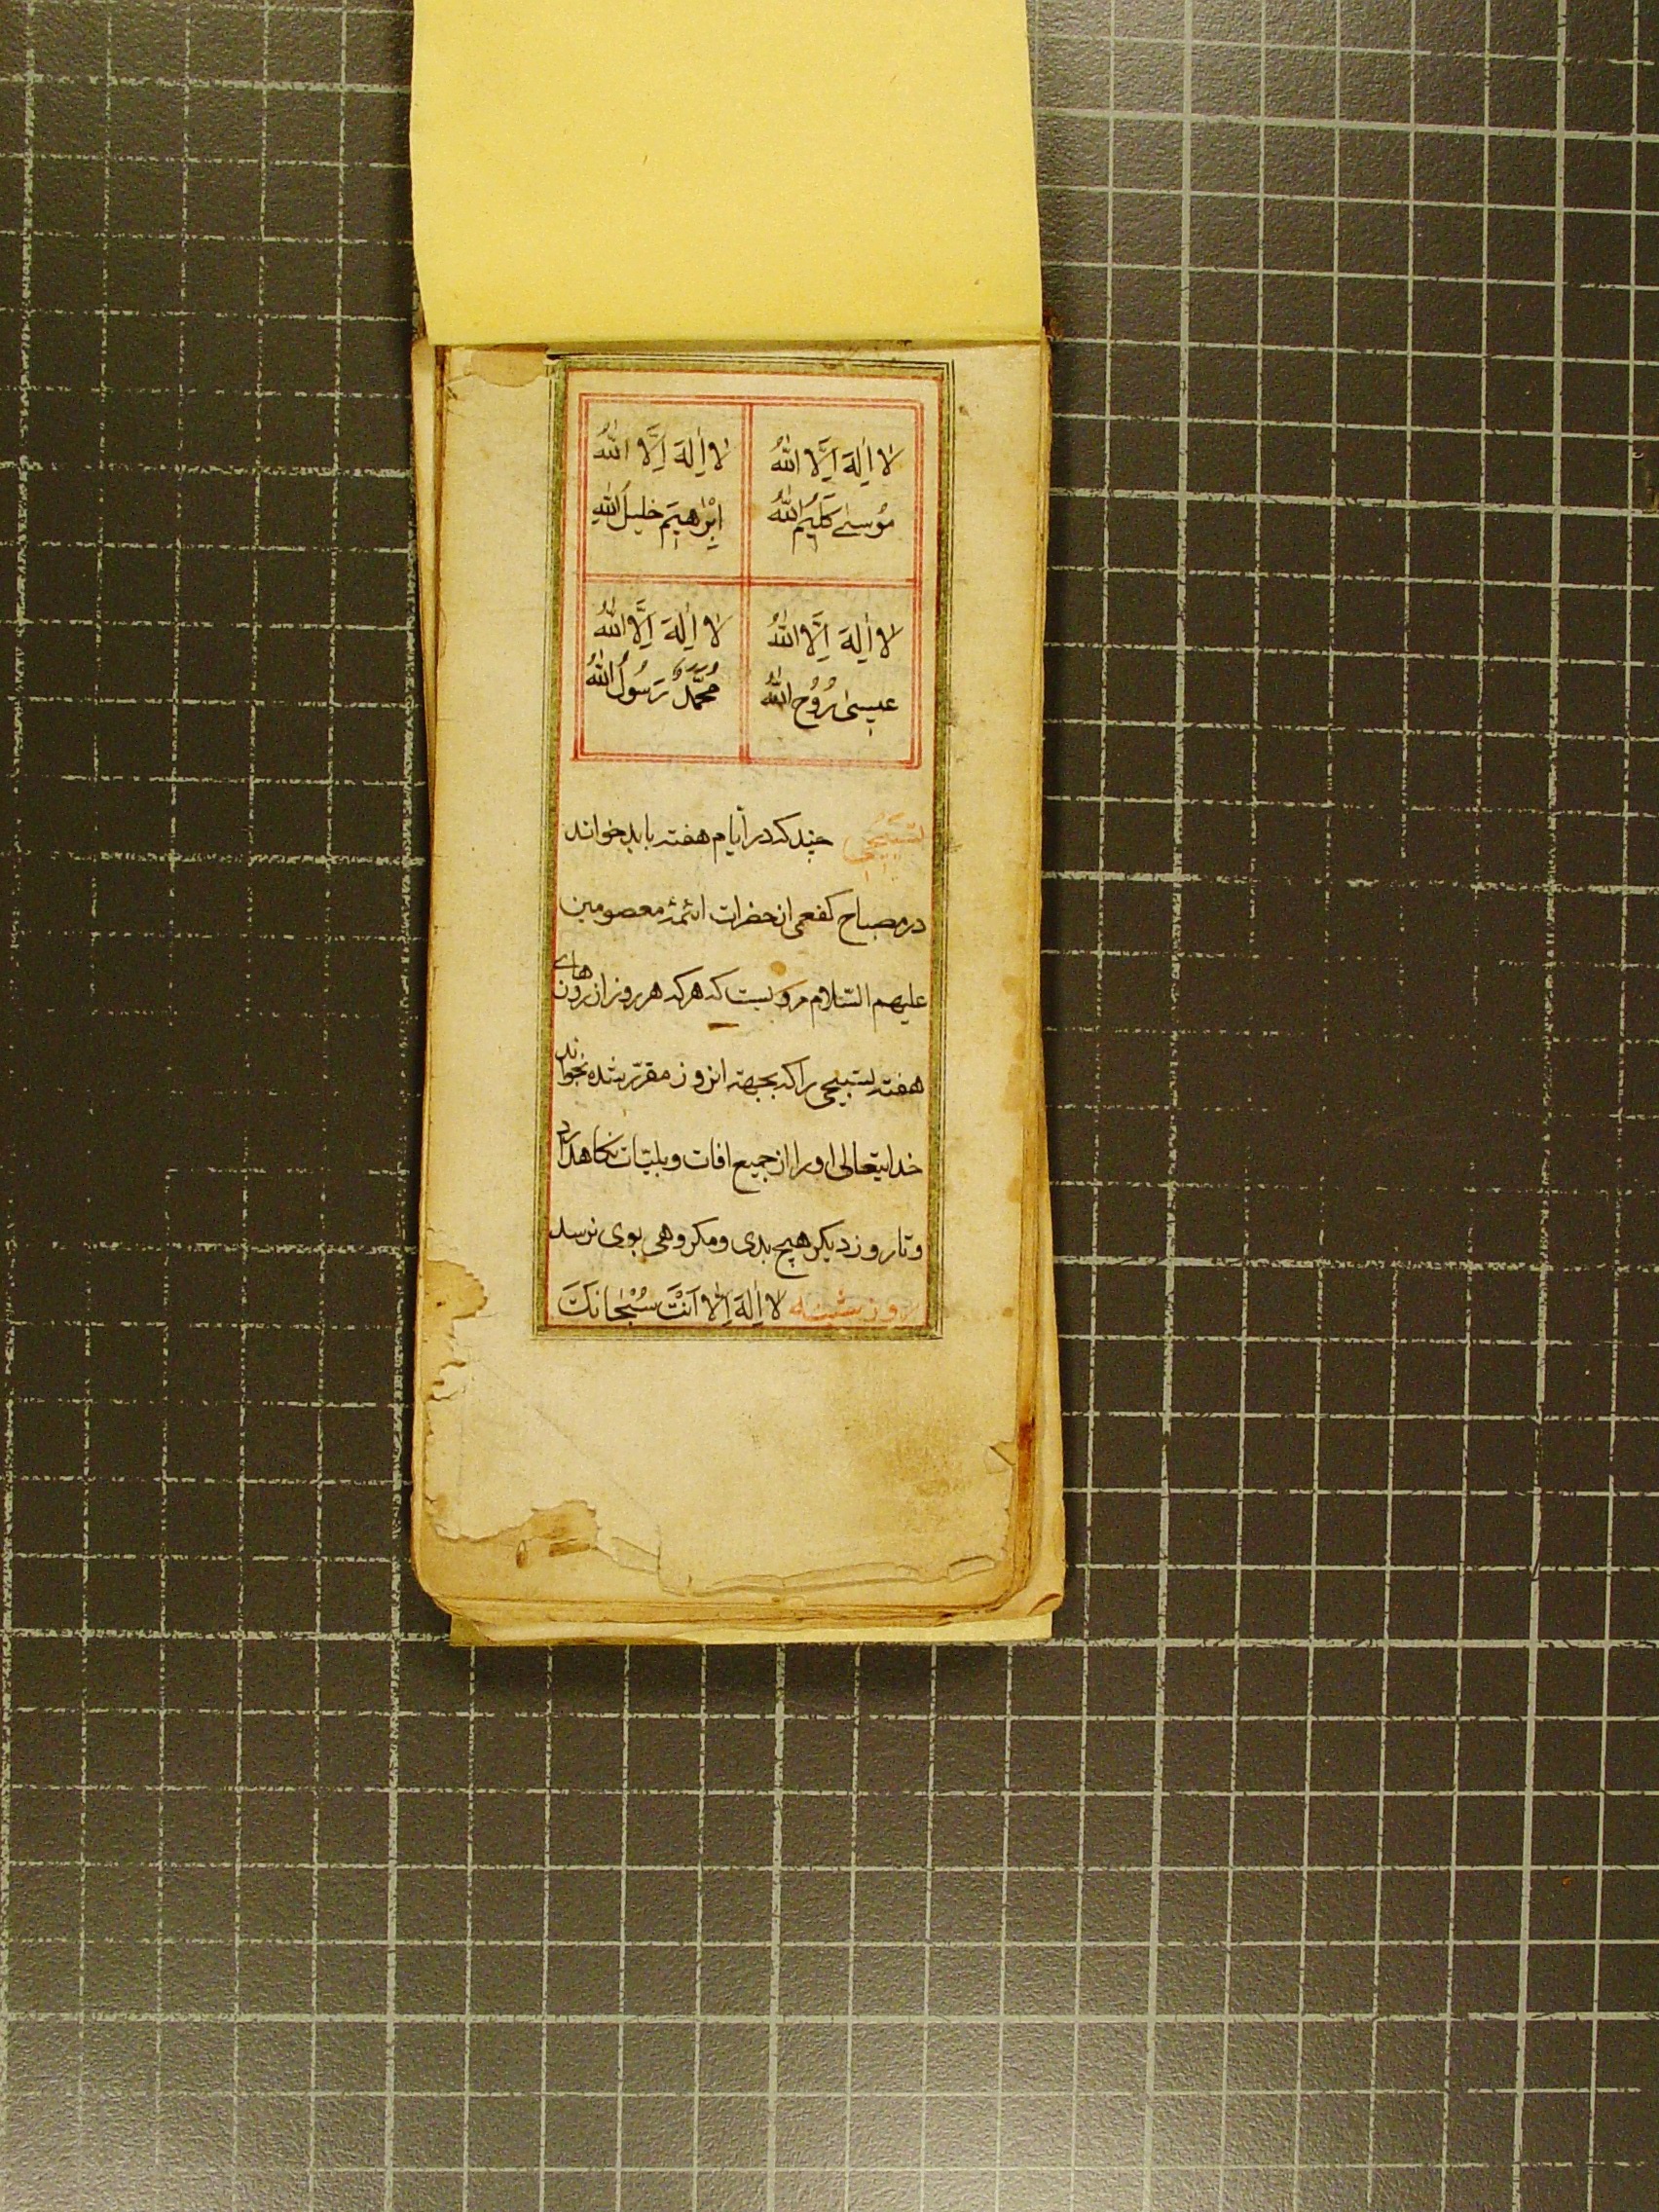 لا اِلهَ اِلَّا اللهُ
مُوسىٰ كَلِيمُ اللهُ
لا اِلهَ اِلَّا اللهُ
اِبْراهِيَم خليلُ اللهِ
لا اِلهَ اِلَّا اللهُ
عيسىٰ رُوُحُ اللهُ
لا اِلهَ اِلَّا اللهُ
مُحَمَّدٌ رَسُولُ اللهُ
تسبیحی چند که در ایام هفته باید خواند
در مصباح کفعمی از حضرات ائمهٔ معصومین
علیهم السّلام مرویست که هر که هر روز از روزهای
هفته تسبیحی را که بجهته انروز مقرّر شده بخواند
خدایتعالی او را از جمیع افات و بلیّات نکاهدارد
و تا روز دیکر هیچ بدی و مکروهی بوی نرسد
روز شنبه لا اِلهَ اِلّا اَنْتَ سُبْحانَكَ